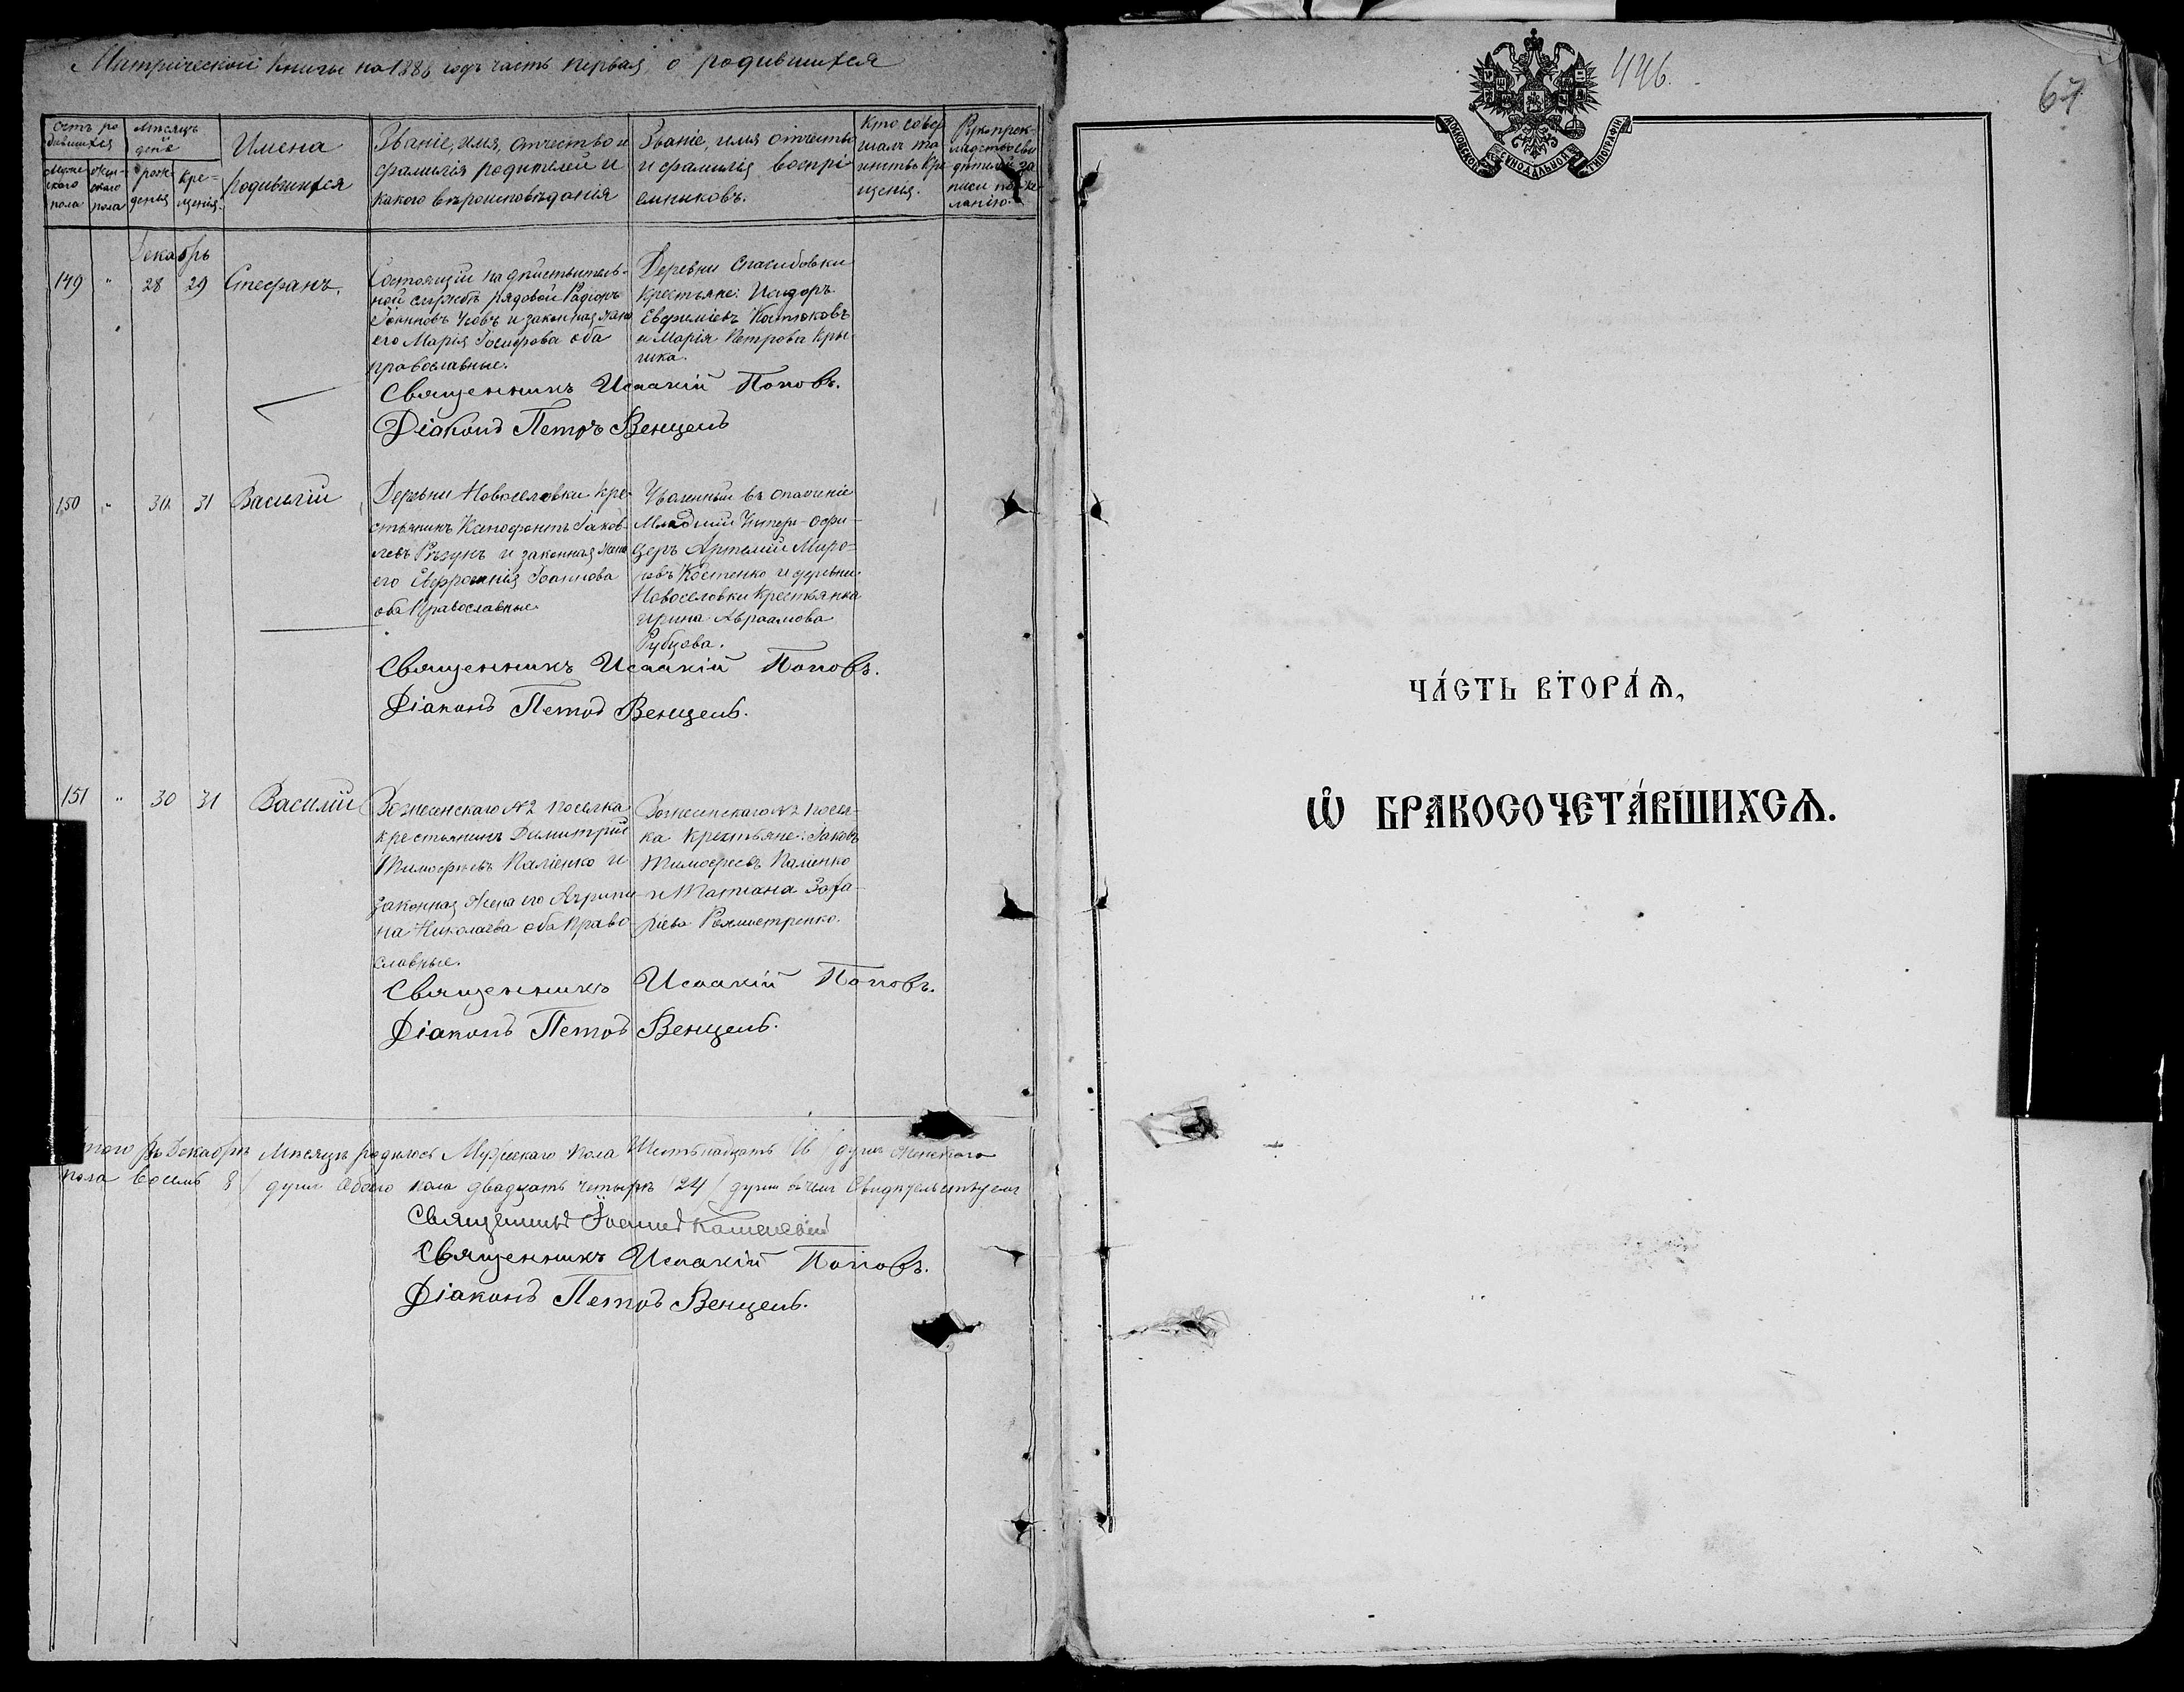 Метрической книги на 1886 годъ часть первая, о родившихся
Счетъ ро
дившихся
Мѣсяцъ
день
Имена
родившихся
Званіе, имя, отчество и
фамилія родителей и
какого вѣроисповѣданія
Званіе, имя отчество
и фамилія воспрі
емниковъ.
Кто совер
шалъ та
инство Кре
щенія.
Рукоприк-
ладство сви
дѣтелей за
писи по же
ланію.
Муже
скаго
пола
Жен
скаго
пола
рож
денія
Кре-
щенія.
Декабрь
149 " 28 29 Стефанъ.
Состоящій на дѣйствитель-
ной службѣ рядовой Родіонъ
Іоанновъ Усовъ и законная жена
его Марія Іосифова оба
православные.
Деревни Спасибовки
крестьяне: Исидоръ
Евфиміевъ Костюковъ
и Марія Петрова Кры
Священникъ Исаакій Поповъ.
Діаконъ Петръ Венцель
150 " 30 31 Василій
Деревни Новоселовки кре-
стьянинъ Ксенофонтъ Іаков-
левъ Рѣзунъ и законная жена
его Евфросинія Іоаннова
оба Православные
Уволенный въ
Младшій Унтеръ-Офи-
церъ Артемій Миро-
новъ Костенко и деревни
Новоселовки Крестьянка
Ирина Авраамова
Рубцова.
Священникъ Исаакій Поповъ.
Діаконъ Петръ Венцель.
151 " 30 31 Василій
Вознесенскаго №2 поселка
крестьянинъ Димитрій
Тимофеевъ Паліенко и
законная жена его Агрипи
на Николаева оба Право-
славные.
Вознесенскаго №2 посел-
ка Крестьяне: Іаковъ
Тимофеевъ Паліенко
и Татіана Заха-
ріева
Священникъ Исаакій Поповъ.
Діаконъ Петръ Венцель.
Итого въ Декабрѣ Мѣсяцѣ родилось Мужескаго пола Шестьнадцать 16 / душъ Женскаго
пола восемь 8 / душъ Обоего пола двадцать четыре /24/ душъ въ чемъ Свидѣтельствуемъ
Священникъ Іоаннъ
Священникъ Исаакій Поповъ.
Діаконъ Петръ Венцель.
446.
67
МОСКОВСКОЙ СѴНОДАЛЬНОЙ ТИПОГРАФІИ
ЧА́СТЬ ВТОРА́Ѧ,
Ѡ҆ БРАКОСОЧЕТА́ВШИХСѦ.